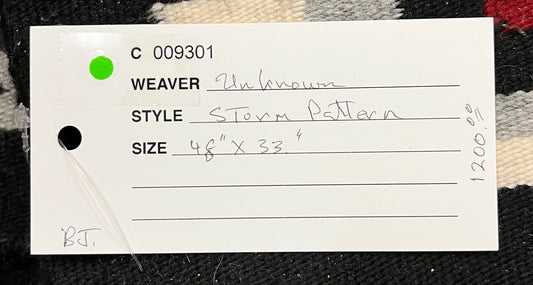 C 009301
WEAVER Unknown
STYLE STorm Pattern
SIZE 48" X 33"
BJ.
1200.00